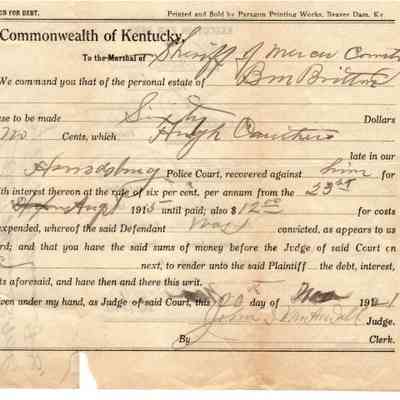 N FOR DEBT. Printed and Sold by Paragon Printing Works, Beaver Dam, Ky.
Commonwealth of Kentucky,
To the Marshal of Sheriff of Mercer County
We command you that of the personal estate of B M Britton
se to be made Dollars
no Cents, which Hugh
late in our
Harrodsburg Police Court, recovered against him for
th interest thereon at the rate of six per cent. per annum from the 23rd
Aug 1915 until paid; also $12.50 for costs
expended, whereof the said Defendant was convicted, as appears to us
rd; and that you have the said sums of money before the Judge of said Court on
next, to render unto the said Plaintiff the debt, interest,
ts aforesaid, and have then and there this writ.
iven under my hand, as Judge of said Court, this day of 1921
John Judge.
By Clerk.